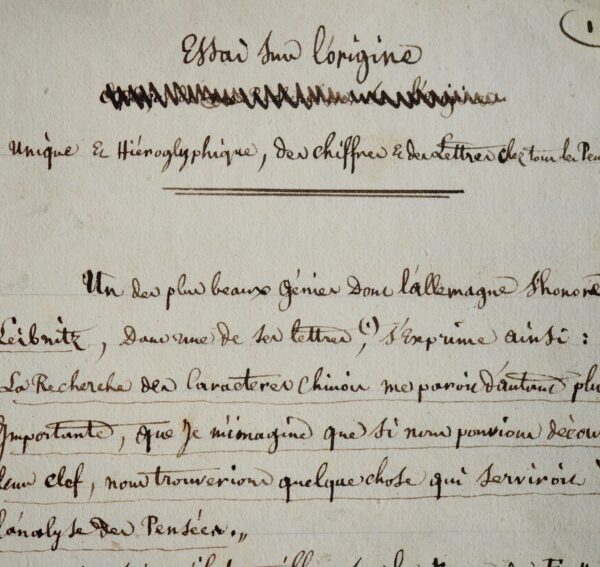 1
Essai sur l'origine
Unique & Hiéroglyphique, des chiffres & des Lettres chez tous les Peu
Un des plus beaux génies dont l'allemagne s'honore
Leibnitz, dans une de ses lettres, (1) s'exprime ainsi :
La Recherche des Caracteres Chinois me paroit d'autant plus
Importante, que je m'imagine que si nous pouvions décou
leur clef, nous trouverions quelque chose qui serviroit à
l'analyse des Pensées.„